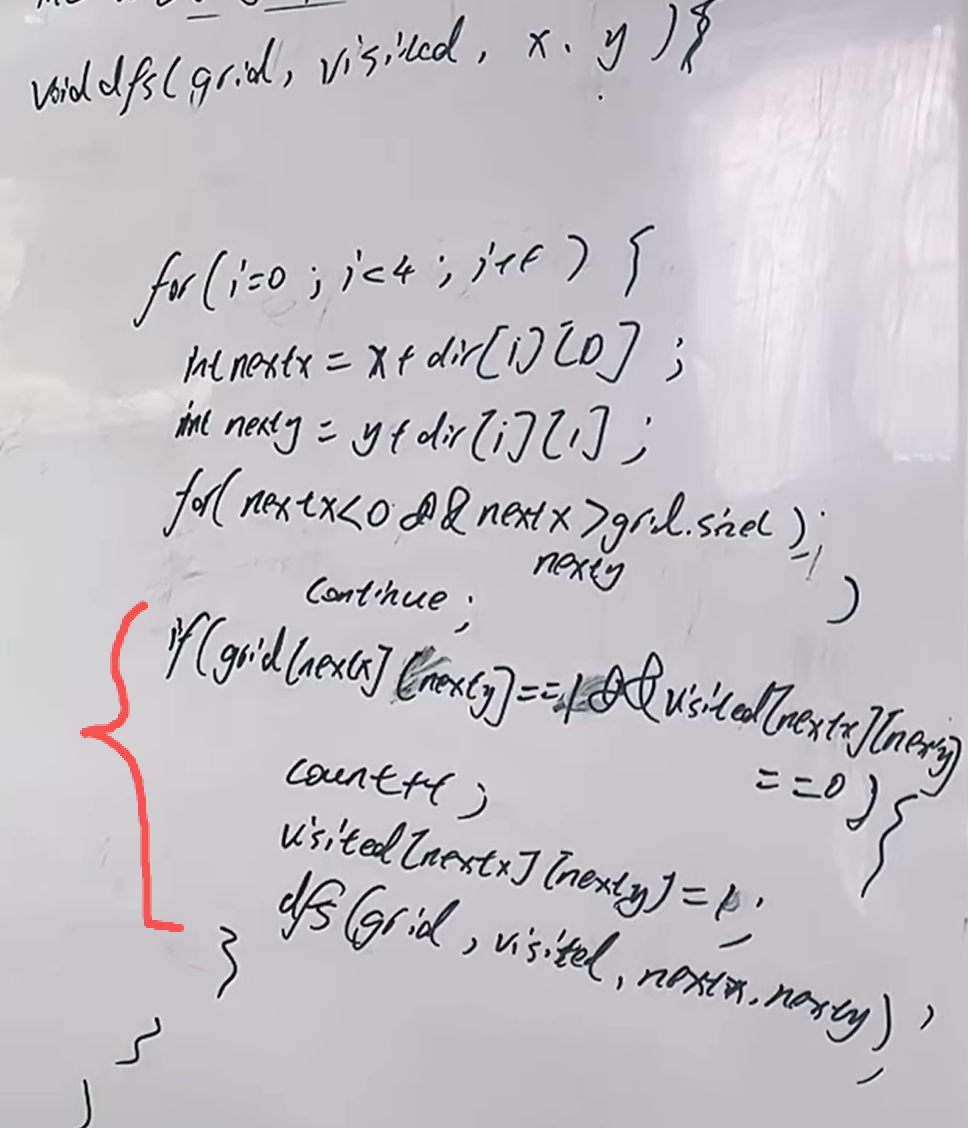 void dfs(grid, visited, x, y){
for(i=0; i<4; i++) {
int nextx = x+dir[i][0];
int nexty = y+dir[i][1];
for(nextx<0 && nextx>grid.size()-1
nexty )
continue;
if(grid[nextx][nexty]==1&&visited[nextx][nexty]
==0){
count++;
visited[nextx][nexty]=1;
dfs(grid, visited, nextx, nexty);
}
}
}